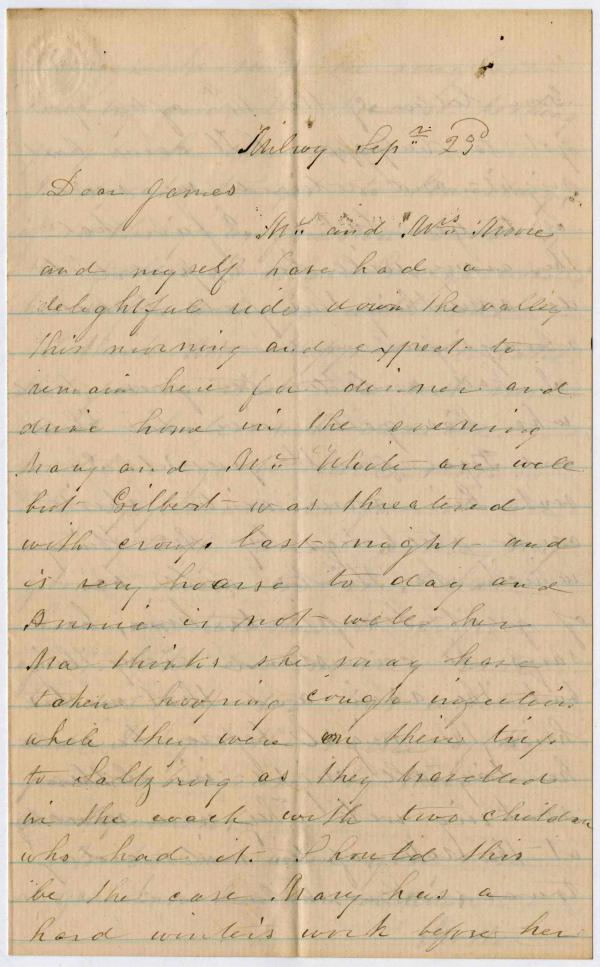 Milroy Sepr 23d
Dear James
Mr and Mrs Moore
and myself have had a
delightful ride down the valley
this morning and expect to
remain here for dinner and
drive home in the evening
Mary and Mr White are well
but Gilbert was threatened
with croup last night and
is very hoarse to day and
Annie is not well her
Ma thinks she may have
taken hooping cough infection
while they were on their trip
to Saltzburg as they travelled
in the coach with two children
who had it. Should this
be the case Mary has a
hard winter's work before her